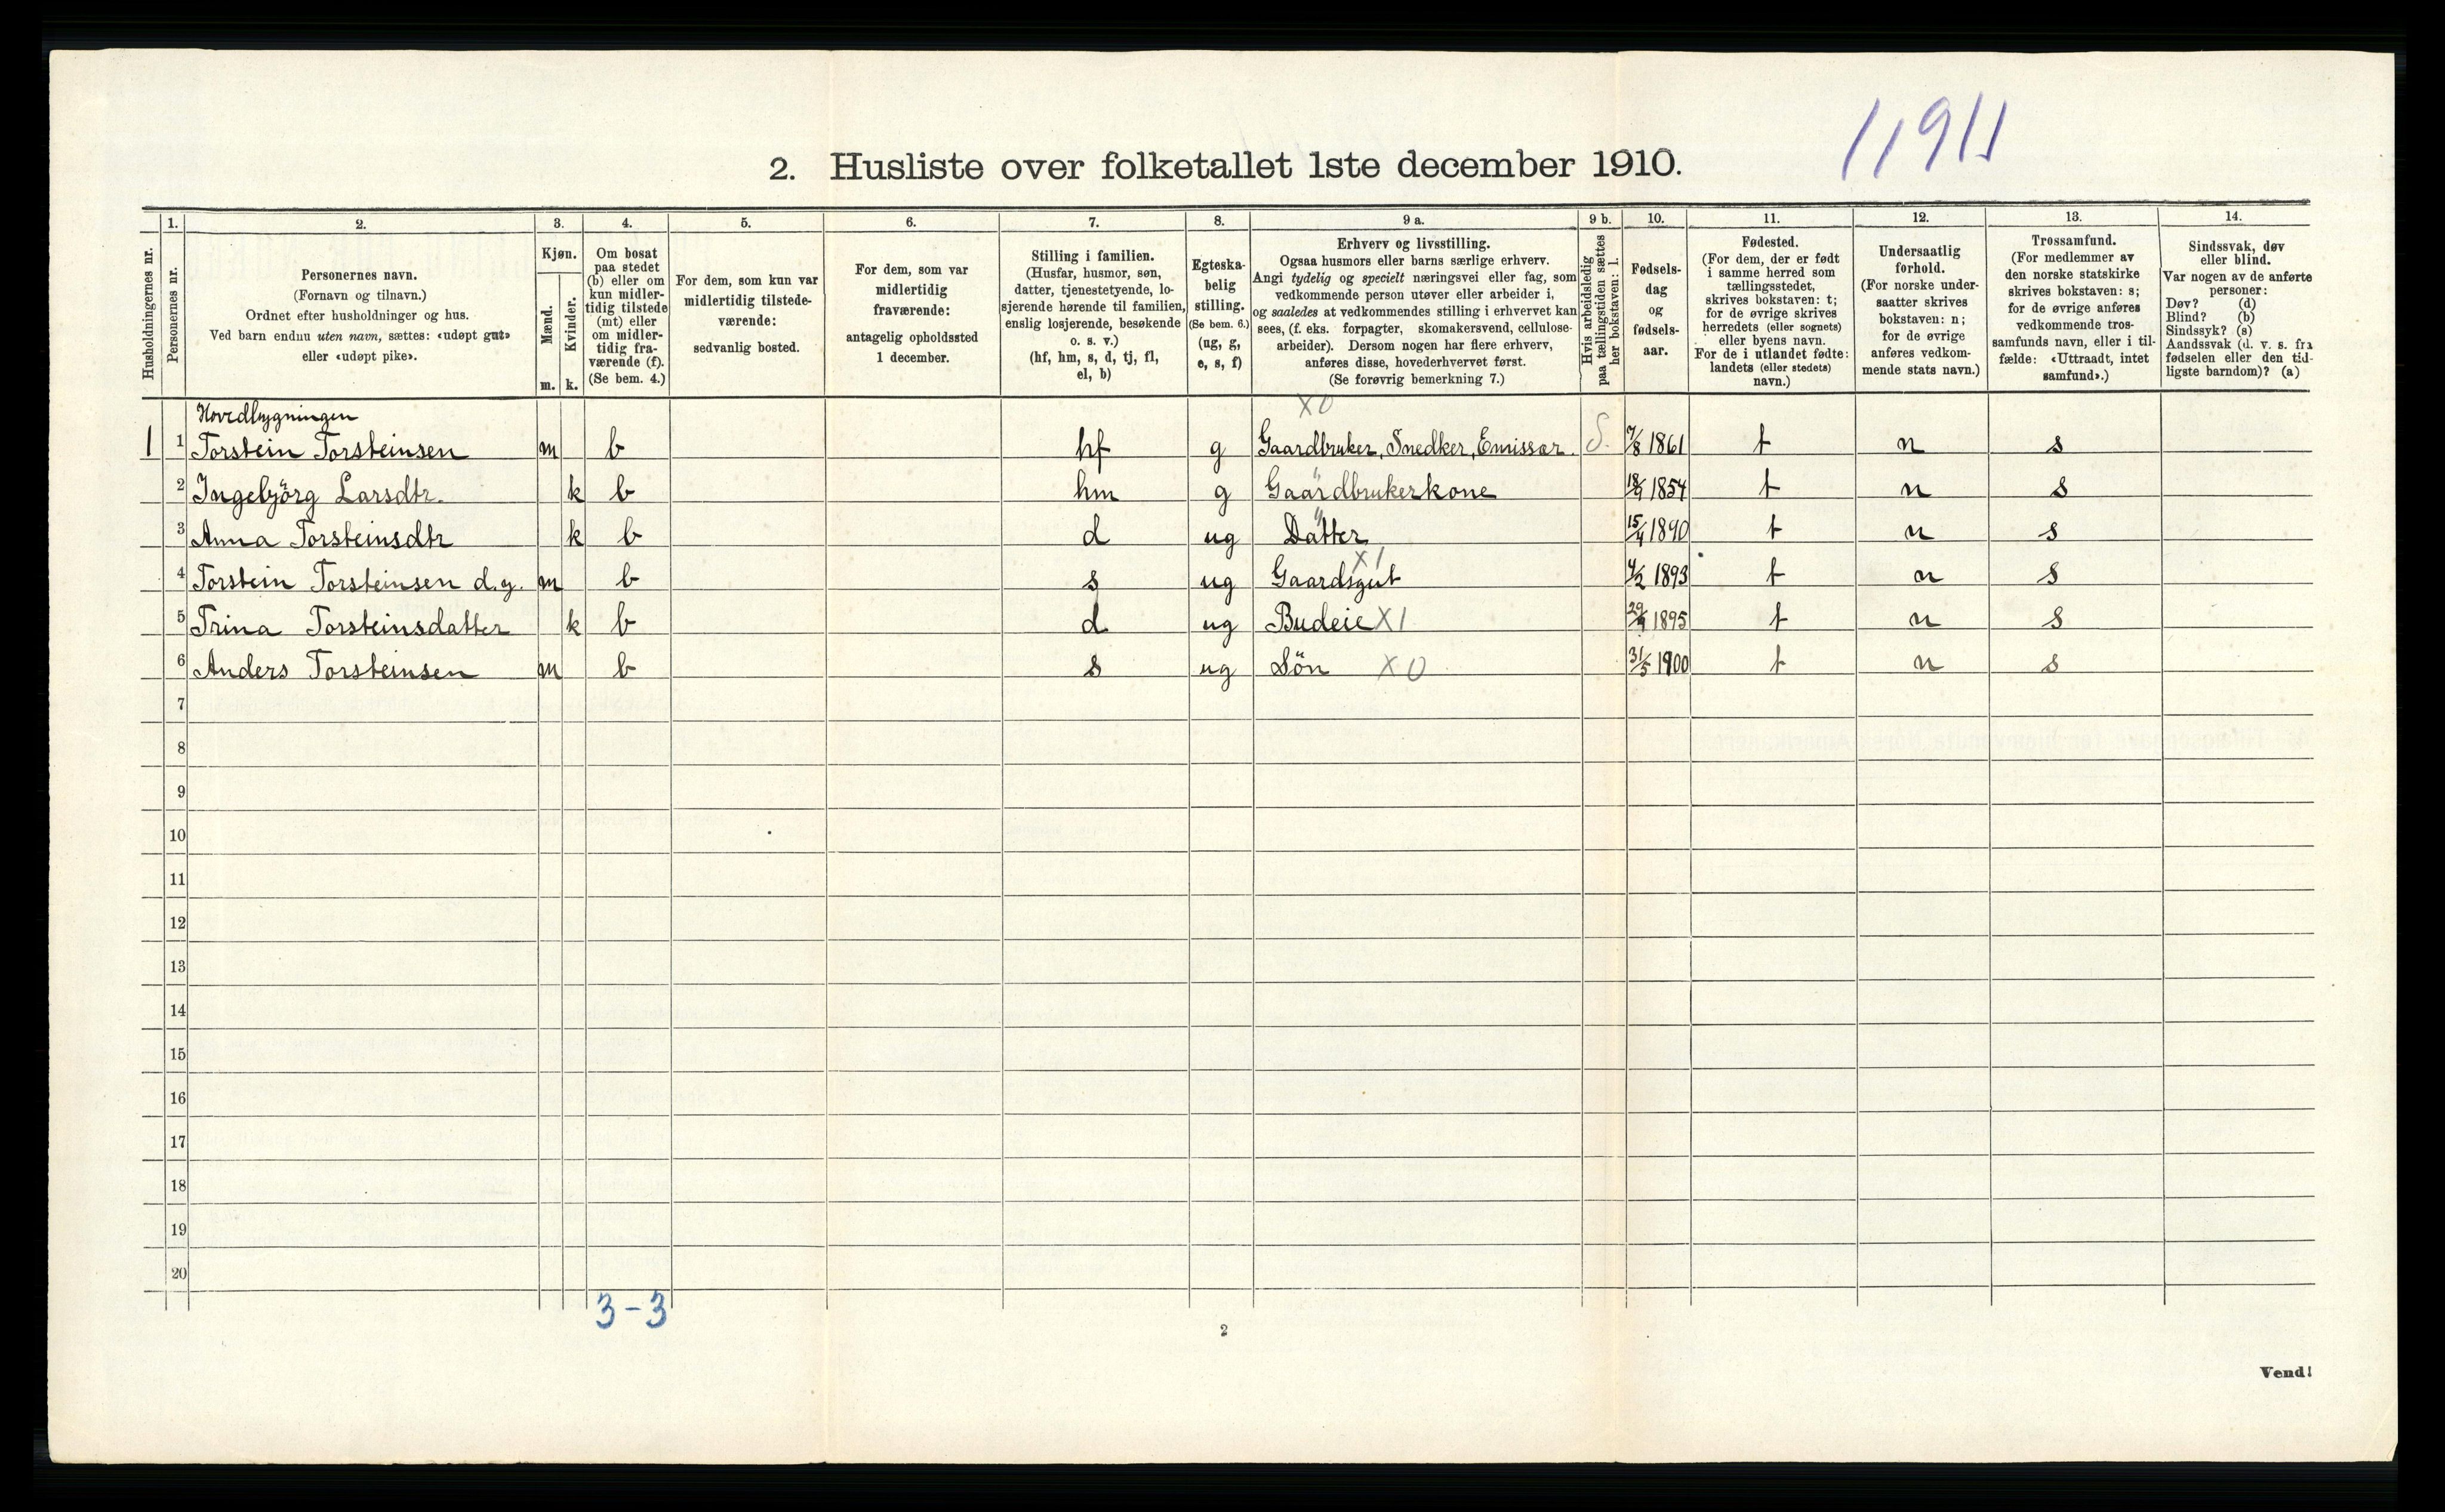 11911
2. Husliste over folketallet 1ste december 1910.
Husholdningernes nr.
1.
Personernes nr.
2.
Personernes navn.
(Fornavn og tilnavn.)
Ordnet efter husholdninger og hus.
Ved barn endnu uten navn, sættes: «udøpt gut»
eller «udøpt pike».
3.
Kjøn.
Mænd.
Kvinder.
m. k.
4.
Om bosat
paa stedet
(b) eller om
kun midler-
tidig tilstede
(mt) eller
om midler-
tidig fra-
værende (f).
(Se bem. 4.)
5.
For dem, som kun var
midlertidig tilstede-
værende:
sedvanlig bosted.
6.
For dem, som var
midlertidig
fraværende:
antagelig opholdssted
1 december.
7.
Stilling i familien.
(Husfar, husmor, søn,
datter, tjenestetyende, lo-
sjerende hørende til familien,
enslig losjerende, besøkende
o. s. v.)
(hf, hm, s, d, tj, fl,
el, b)
8.
Egteska-
belig
stilling.
(Se bem. 6.)
(ug, g,
e, s, f)
9 a.
Erhverv og livsstilling.
Ogsaa husmors eller barns særlige erhverv.
Angi tydelig og specielt næringsvei eller fag, som
vedkommende person utøver eller arbeider i,
og saaledes at vedkommendes stilling i erhvervet kan
sees, (f. eks. forpagter, skomakersvend, cellulose-
arbeider). Dersom nogen har flere erhverv,
anføres disse, hovederhvervet først.
(Se forøvrig bemerkning 7.)
9 b.
Hvis arbeidsledig
paa tællingstiden sættes
her bokstaven: l.
10.
Fødsels-
dag
og
fødsels-
aar.
11.
Fødested.
(For dem, der er født
i samme herred som
tællingsstedet,
skrives bokstaven: t;
for de øvrige skrives
herredets (eller sognets)
eller byens navn.
For de i utlandet fødte:
landets (eller stedets)
navn.)
12.
Undersaatlig
forhold.
(For norske under-
saatter skrives
bokstaven: n;
for de øvrige
anføres vedkom-
mende stats navn.)
13.
Trossamfund.
(For medlemmer av
den norske statskirke
skrives bokstaven: s;
for de øvrige anføres
vedkommende tros-
samfunds navn, eller i til-
fælde: «Uttraadt, intet
samfund».)
14.
Sindssvak, døv
eller blind.
Var nogen av de anførte
personer:
Døv? (d)
Blind? (b)
Sindssyk? (s)
Aandssvak (d. v. s. fra
fødselen eller den tid-
ligste barndom)? (a)
Hovedbygningen X0
1 1 Torstein Torsteinsen m b hf g Gaardbruker, Snedker, Emissær. S. 7/8 1861 t n s
2 Ingebjörg Larsdtr. k b hm g Gaardbrukerkone 18/9 1854 t n s
3 Anna Torsteinsdtr k b d ug Datter 15/4 1890 t n s
X1
4 Torstein Torsteinsen d.y. m b s ug Gaardsgut 4/2 1893 t n s
5 Trina Torsteinsdatter k b d ug Budeie X1 29/9 1895 t n s
6 Anders Torsteinsen m b s ug Sön X0 31/5 1900 t n s
7
8
9
10
11
12
13
14
15
16
17
18
19
20
3-3
2
Vend!